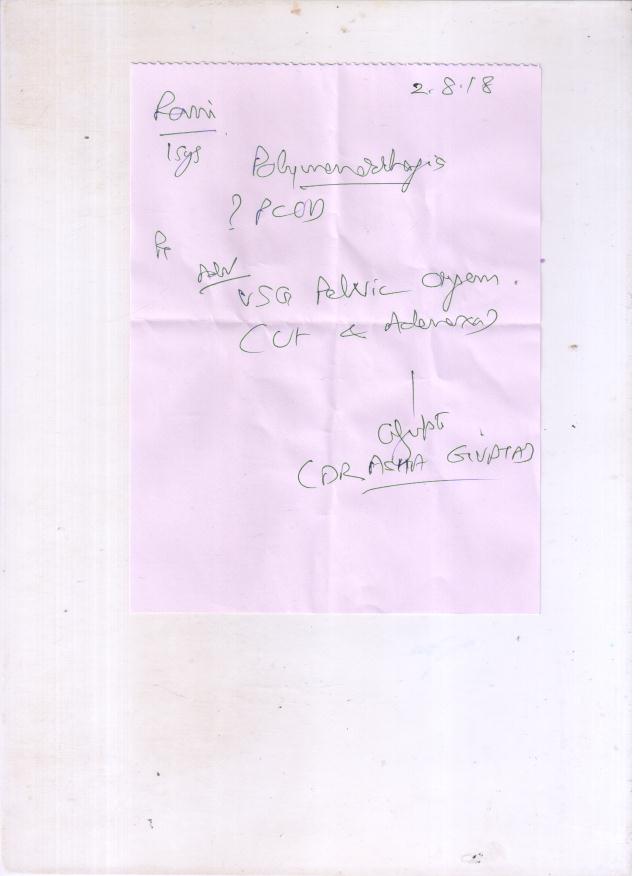 2.8.18
Rani
15ys
Polymenorrhagia
? PCOD
Rx
Adv
USG Pelvic organ.
(Ut & Adenexa)
Gupta
(DR ASHA GUPTA)